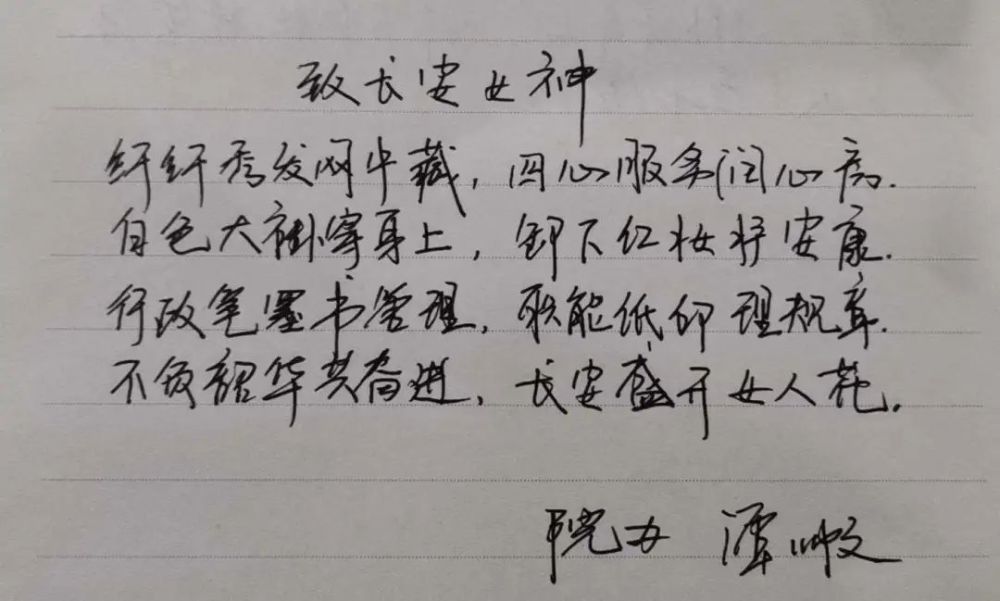 致长安女神
纤纤秀发网中藏，四心服务润心房.
白色大褂穿身上，卸下红妆护安康.
行政笔墨书管理，职能纸印理规章.
不负韶华共奋进，长安盛开女人花.
院办 谭